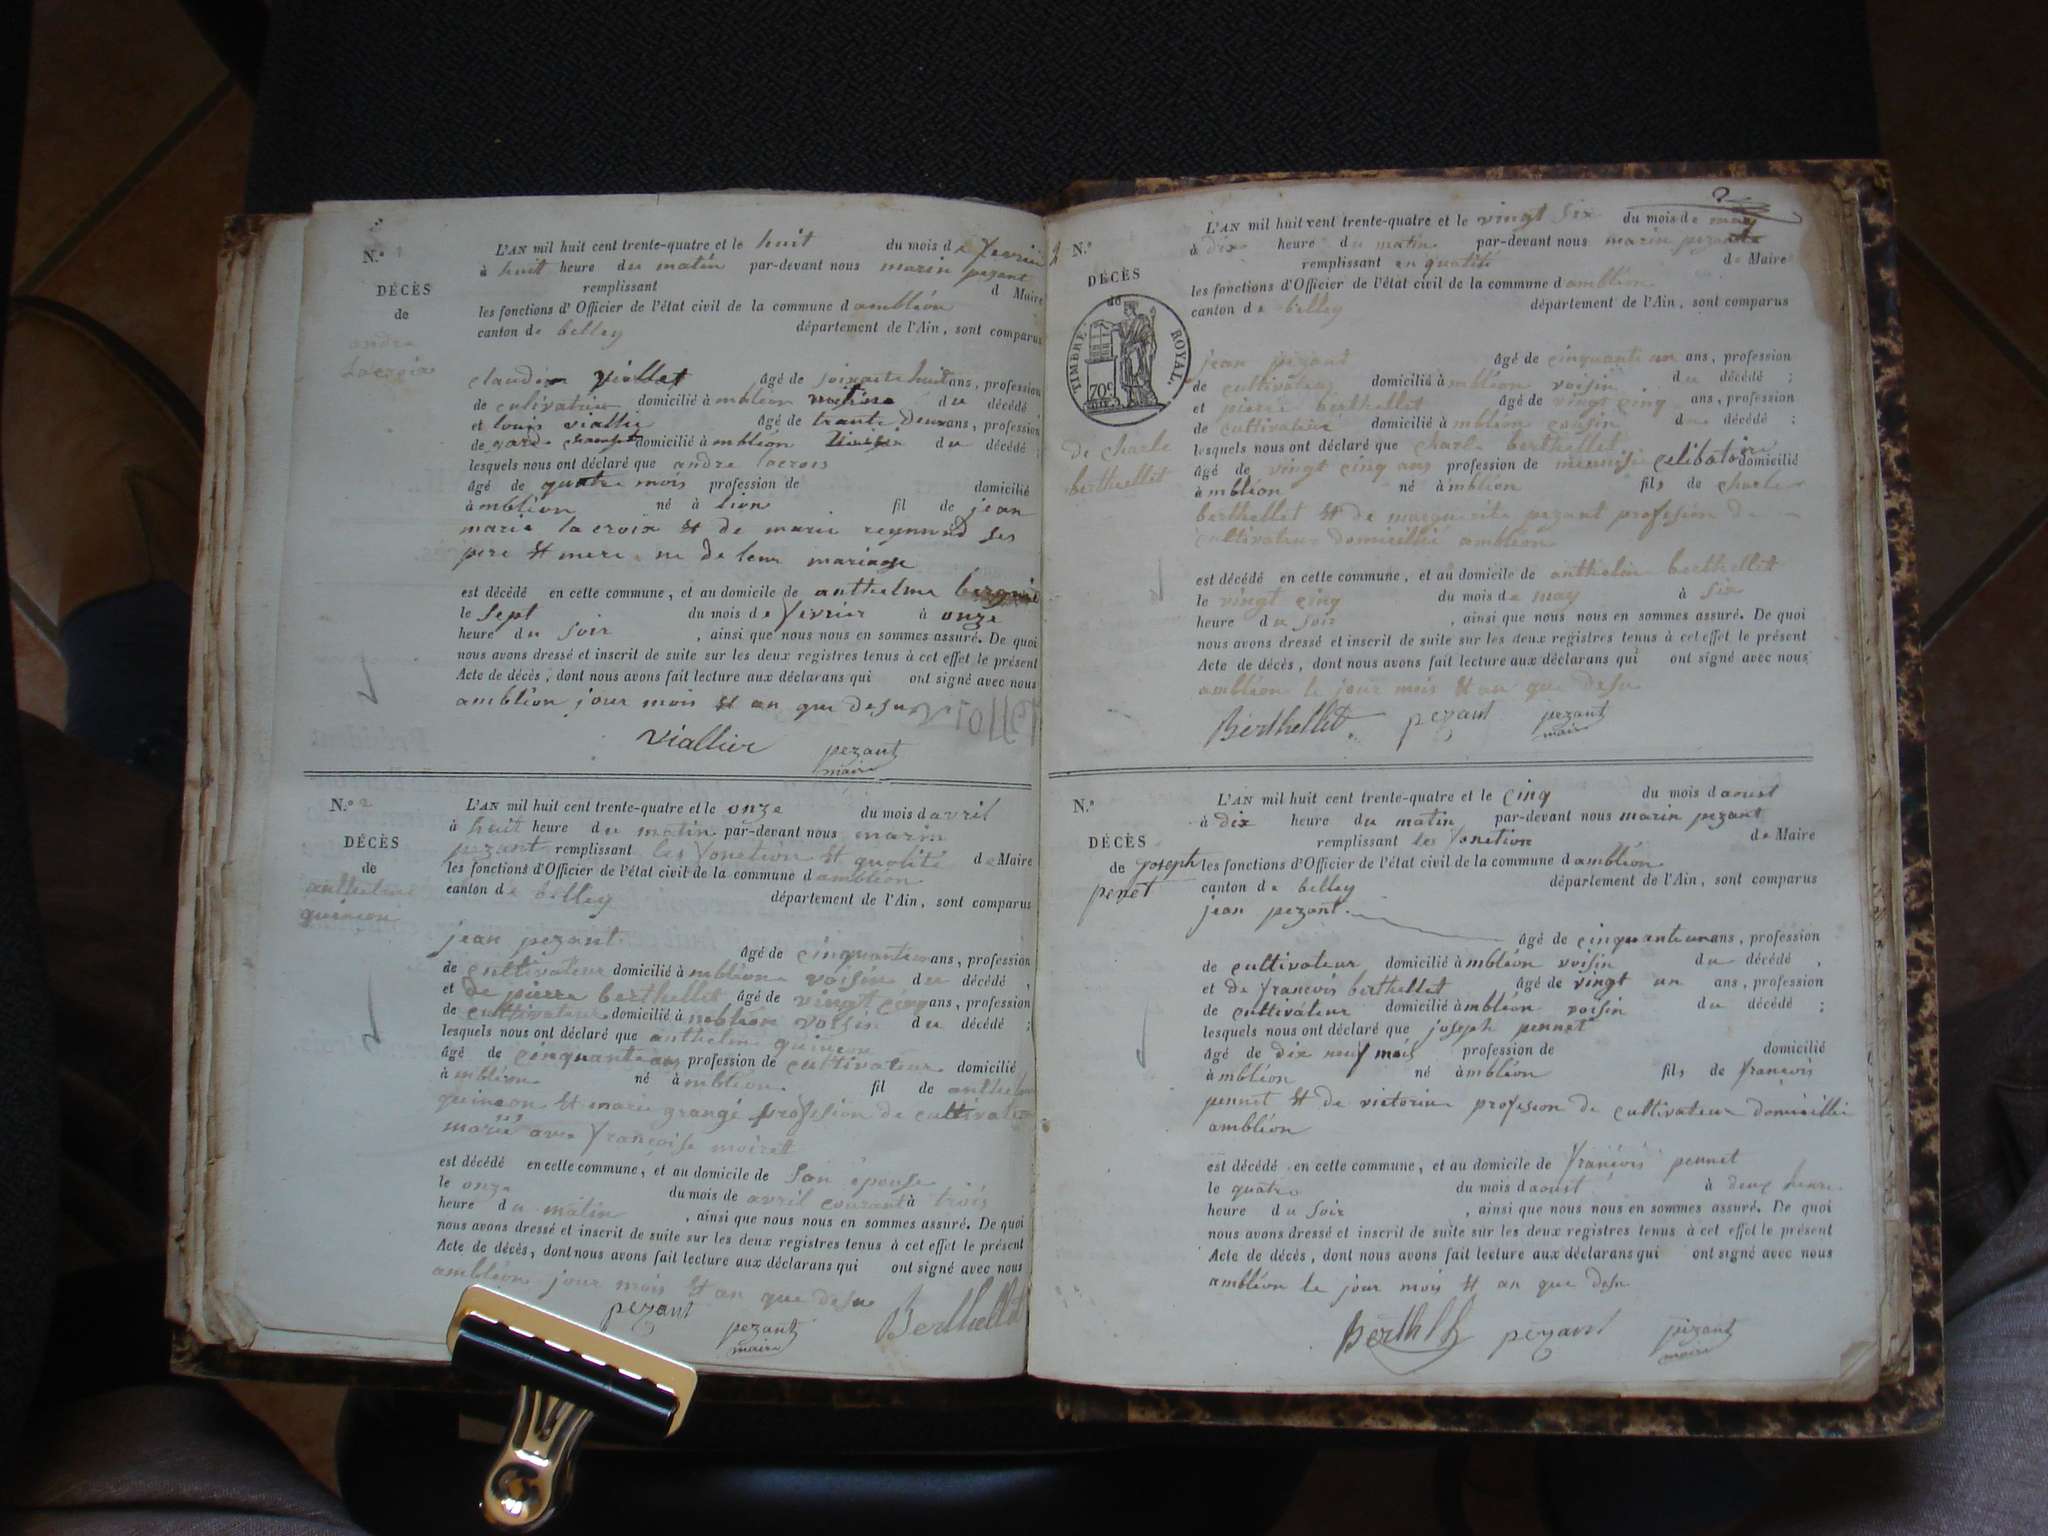 N.º 1
DÉCÈS
de
andre
Lacroix
L'AN mil huit cent trente-quatre et le huit du mois de fevrier
à huit heure du matin par-devant nous marin pezant
remplissant d Maire
les fonctions d'Officier de l'état civil de la commune d'ambléon
canton de belley département de l'Ain, sont comparus
claudin viollet âgé de soixante huit ans, profession
de cultivateur domicilié à mbleon du décédé ;
et louis viallie âgé de trante deux ans, profession
de garde domicilié à mbléon du décédé ;
lesquels nous ont déclaré que andre lacrois
âgé de quatre mois profession de domicilié
à mbléon né à lion fil de jean
marie la croix et de marie reymond ses
pere et mere ne de leur mariage
est décédé en cette commune, et au domicile de anthelme
le sept du mois de fevrier à onze
heure du soir , ainsi que nous nous en sommes assuré. De quoi
nous avons dressé et inscrit de suite sur les deux registres tenus à cet effet le présent
Acte de décès, dont nous avons fait lecture aux déclarans qui ont signé avec nous
ambléon jour mois et an que desu
viallier pezant
maire
N.º 2
DÉCÈS
de
anthelme
quincon
L'AN mil huit cent trente-quatre et le onze du mois d avril
à huit heure du matin par-devant nous marin
pezant remplissant les fonction et qualité de Maire
les fonctions d'Officier de l'état civil de la commune d ambléon
canton de belley département de l'Ain, sont comparus
jean pezant
âgé de cinquanteun ans, profession
de cultivateur domicilié à mbléon voisin du décédé ,
et de pierre berthellet âgé de vingt cinq ans, profession
de cultivateur domicilié à mbléon voisin du décédé ;
lesquels nous ont déclaré que anthelm quincon
âgé de cinquante ans profession de cultivateur domicilié
à mbléon né à mbléon fil de anthelm
quincon et marie grangé profesion de cultivateur
marié avec françoise moirett
est décédé en cette commune, et au domicile de son épouse
le onze du mois de avril courant à trois
heure du matin , ainsi que nous nous en sommes assuré. De quoi
nous avons dressé et inscrit de suite sur les deux registres tenus à cet effet le présent
Acte de décès, dont nous avons fait lecture aux déclarans qui ont signé avec nous
ambléon jour mois et an que desu
pezant pezant Berthellet
maire
2
N.º
DÉCÈS
de
TIMBRE ROYAL
70c
de charle
berthellet
L'AN mil huit cent trente-quatre et le vingt six du mois de may
à dix heure du matin par-devant nous marin pezant
remplissant en qualité de Maire
les fonctions d'Officier de l'état civil de la commune d ambléon
canton de belley département de l'Ain, sont comparus
jean pezant âgé de cinquante un ans, profession
de cultivateur domicilié à mbléon voisin du décédé ;
et pierre berthellet âgé de vingt cinq ans, profession
de cultivateur domicilié à mbléon cousin du décédé ;
lesquels nous ont déclaré que charle berthellet
âgé de vingt cinq ans profession de menuisie celibataire domicilié
à mbléon né à mbléon fils de charle
berthellet et de marguerite pezant profesion de
cultivateur domicillié ambléon
est décédé en cette commune, et au domicile de anthelm berthellet
le vingt cinq du mois de may à six
heure du soir , ainsi que nous nous en sommes assuré. De quoi
nous avons dressé et inscrit de suite sur les deux registres tenus à cet effet le présent
Acte de décès, dont nous avons fait lecture aux déclarans qui ont signé avec nous
ambléon le jour mois et an que desu
Berthellet pezant pezant
maire
N.º
DÉCÈS
de joseph
penet
L'AN mil huit cent trente-quatre et le cinq du mois d aoust
à dix heure du matin par-devant nous marin pezant
remplissant les fonction de Maire
les fonctions d'Officier de l'état civil de la commune d ambléon
canton de belley département de l'Ain, sont comparus
jean pezant
âgé de cinquanteun ans, profession
de cultivateur domicilié à mbléon voisin du décédé ,
et de francois berthellet âgé de vingt un ans, profession
de cultivateur domicilié à mbléon voisin du décédé ;
lesquels nous ont déclaré que joseph pennet
âgé de dix neuf mois profession de domicilié
à mbléon né à mbléon fils de françois
pennet et de victorine profesion de cultivateur domicillié
ambléon
est décédé en cette commune, et au domicile de françois pennet
le quatre du mois d aoust à deux heure
heure du soir , ainsi que nous nous en sommes assuré. De quoi
nous avons dressé et inscrit de suite sur les deux registres tenus à cet effet le présent
Acte de décès, dont nous avons fait lecture aux déclarans qui ont signé avec nous
ambléon le jour mois et an que desu
pezant pezant
maire